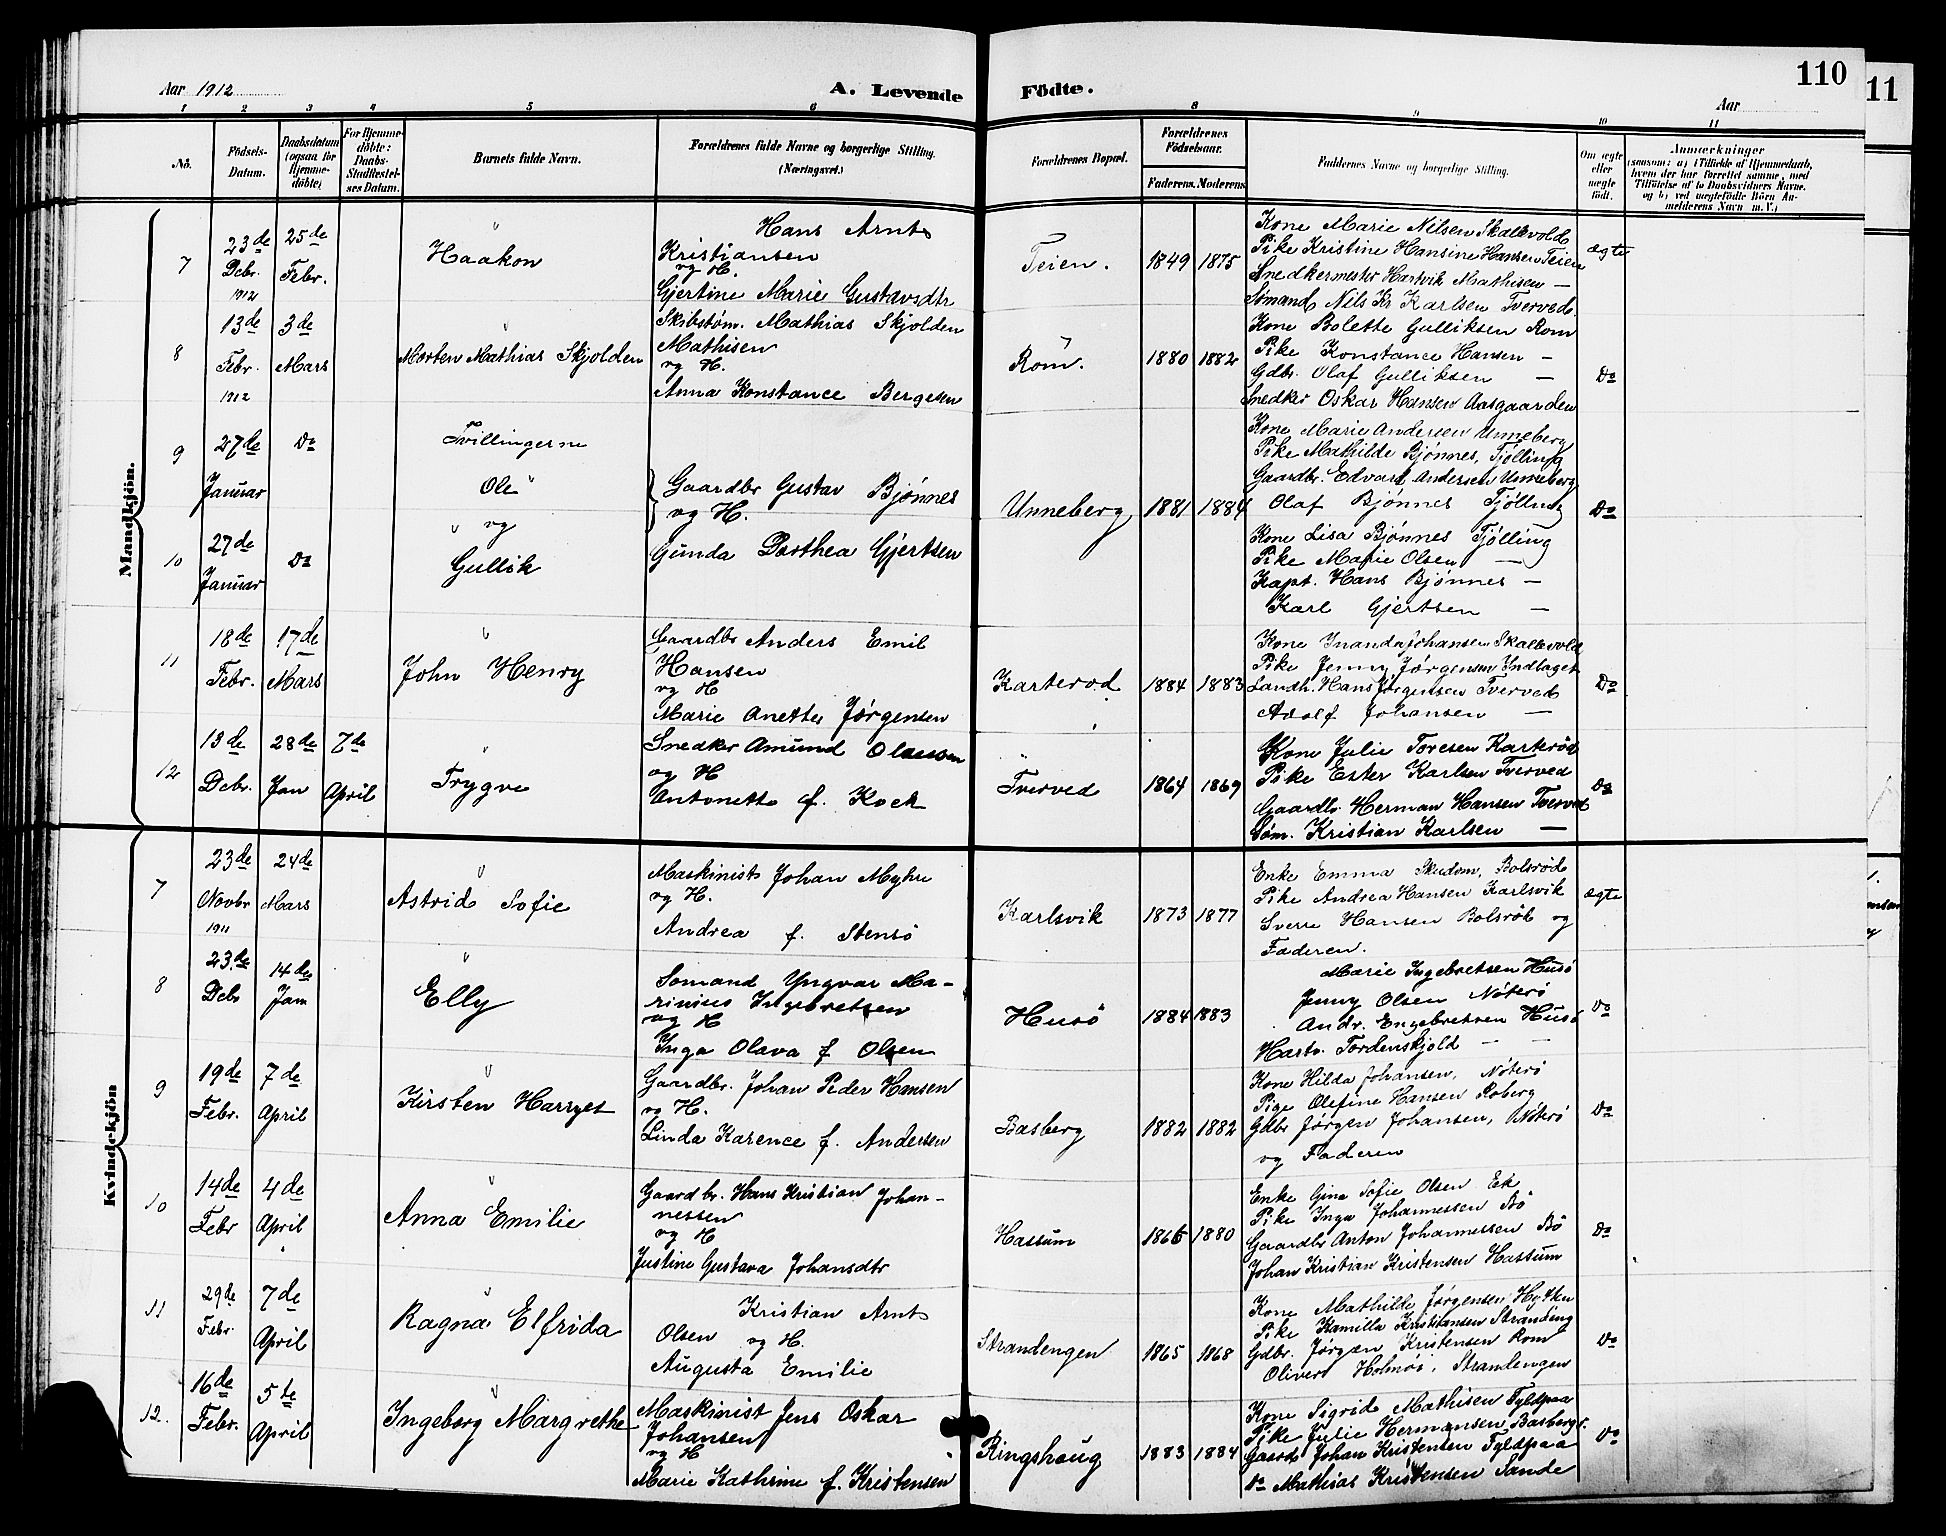 Aar 1912
A. Levende
Födte.
Aar
110
11
1 2 3 4 5 6 8 9 10 11
No.
Födsels-Datum.
Daabsdatum (ogsaa for Hjemme-döbte)
For Hjemme-döbte: Daabs-Stadfestel-ses Datum.
Barnets fulde Navn.
Forældrenes fulde Navne og borgerlige Stilling. (Næringsvei.)
Forældrenes Bopæl.
Forældrenes Födselsaar.
Faderens. Moderens.
Faddernes Navne og borgerlige Stilling.
Om ægte eller uægte födt.
Anmærkninger
(saasom: a) i Tilfælde af Hjemmedaab, hvem der har forrettet samme, med Tilföielse af to Daabsvidners Navne. og b) ved uægtefödte Börn An-melderens Navn m. V.)
Mandkjön.
7
23de Debr. 1912
25de Febr.
Haakon
Hans Arnts
Kristiansen
og H.
Gjertine Marie Gustavsdtr
Teien.
1849 1875
Kone Marie Nilsen Skallevold
Pike Kristine Hansine Hansen Teien
Snedkermester Hartvik Mathisen —
Sømand Nils Kr Karlsen Tverved
ægte
8
13de Febr. 1912
3de Mars
Morten Mathias Skjolden
Skibstøm. Mathias Skjolden
Mathisen
og H.
Anna Konstance Bergesen
Rom.
1880 1882
Kone Bolette Gulliksen Rom
Pike Konstance Hansen —
Gdbr. Olaf Gulliksen —
Snedker Oskar Hansen Aasgaarden
Do
9
27de Januar
Do
Tvillingerne
Ole
og
10
27de Januar
Do
Gullik
Gaardbr Gustav Bjønnes
og H.
Gunda Dorthea Gjertsen
Unneberg
1881 1884
Kone Marie Andersen Unneberg
Pike Mathilde Bjønnes, Tjølling
Gaardbr. Edvard Andersen Unneberg
Olaf Bjønnes Tjølling
Kone Lisa Bjønnes Tjølling
Pike Marie Olsen —
Kapt. Hans Bjønnes —
Karl Gjertsen —
Do
11
18de Febr.
17de Mars
John Henry
Gaardbr Anders Emil
Hansen
og H
Marie Anette Jørgensen
Karterod
1884 1883
Kone Inanda Johansen Skallevold
Pike Jenny Jørgensen Indlaget
Landh. Hans Jørgensen Tverved
Adolf Johansen —
Do
12
13de Debr.
28de Jan
7de April
Trygve
Snedker Amund Olaussen
og H
Antonette f. Kock
Tverved
1864 1869
Kone Julie Toresen Karterød
Pike Ester Karlsen Tverved
Gaardbr. Herman Hansen Tverved
Søm. Kristian Karlsen —
Do
Kvindekjön
7
23de Novbr 1911
24de Mars
Astrid Sofie
Maskinist Johan Myhre
og H.
Andrea f. Stensø
Karlsvik
1873 1877
Enke Emma Skudem, Bolsrød
Pike Andrea Hansen Karlsvik
Sverre Hansen Bolsrød og
Faderen.
ægte
8
23de Debr
14de Jan
Elly
Sømand Yngvar Ma-
rinius Ingebretsen
og H
Inga Olava f Olsen
Husö
1884 1883
Marie Ingebretsen Husö
Jenny Olsen Nöterö
Andr. Engebretsen Husö
Hartv. Tordenskjold — —
Do
9
19de Febr.
7de April
Kirsten Harryet
Gaardbr. Johan Peder Hansen
og H.
Linda Karence f. Andersen
Basberg
1882 1882
Kone Hilda Johansen, Nöterö
Pige Olefine Hansen Roberg
Gdbr Jørgen Johansen, Nöterö
og Faderen
Do
10
14de Febr
4de April
Anna Emilie
Gaardbr. Hans Kristian Johan-
nessen
og H
Justine Gustava Johansdtr
Hassum
1866 1880
Enke Gina Sofie Olsen Ek
Pike Inga Johannessen Bö
Gaardbr Anton Johannessen Bö
Johan Kristian Kristensen Hassum
Do
11
29de Febr.
7de April
Ragna Elfrida
Kristian Arnt
Olsen og H.
Augusta Emilie
Strandengen
1865 1868
Kone Mathilde Jørgensen
Pike Kamilla Kristiansen Strandeng
Gdbr. Jørgen Kristensen Rom
Oliver Holmøs, Strandengen
Do
12.
16de Febr.
5te April
Ingeborg Margrethe
Maskinist Jens Oskar
Johansen
og H
Marie Kathrine f. Kristensen
Ringshaug
1883 1884
Kone Sigrid Mathisen Fyldpaa
Pike Julie Hermansen Basberg
Gaardb Johan Kristensen Fyldpaa
Do Mathias Kristensen Sande
Do